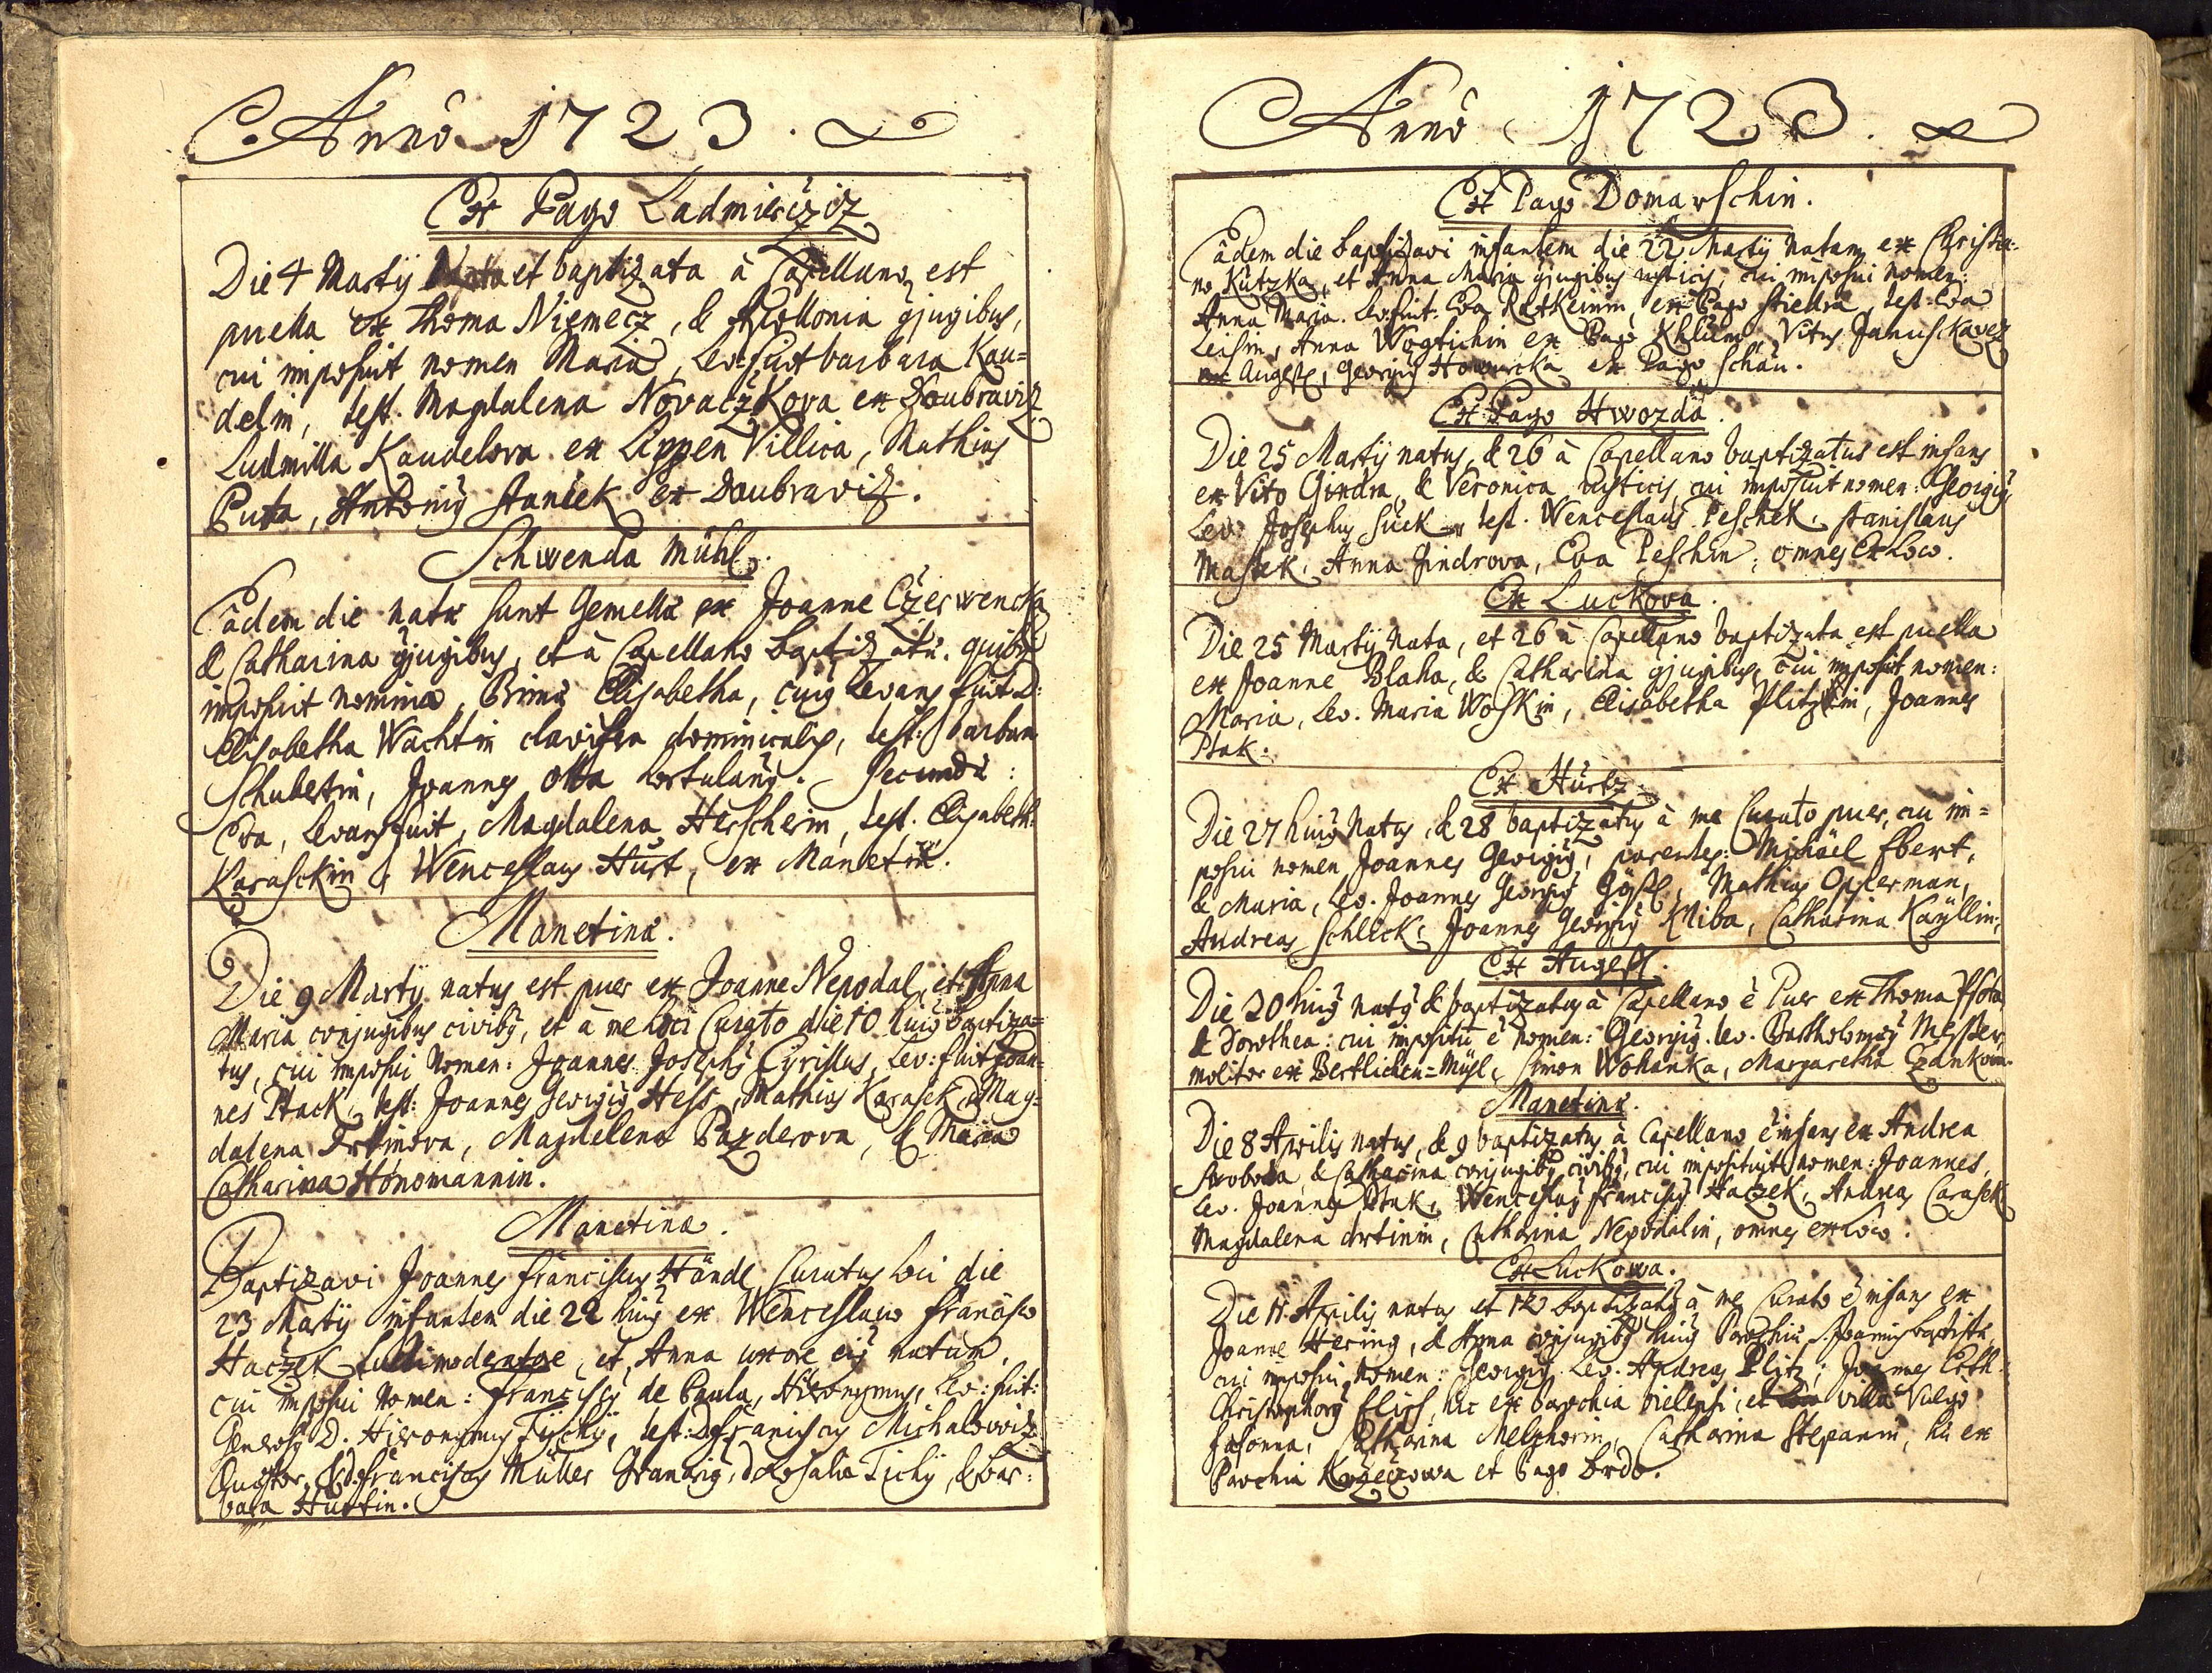 Anno 1723.
Ex Pago Ladmierziz
Die 4 Martÿ Nata et baptizata à Capellano est
puella ex Thoma Niemecz, & Apollonia gjugibus,
cui imposuit nomen Maria, lev: fuit barbara Kau=
delin, test. Magdalena Novaczkova ex Doubraviz
Ludmilla Kaudelova ex Lippen Villica, Mathias
Puta, Antonig Staniek ex Doubraviz.
Schwenda Mühl.
Eâdem die natæ sunt Gemellæ ex Joanne Czerwencka
& Catharina gjugibus, et à Capellano baptizatæ. quibg
imposuit nomina, Primæ Elisabetha, cuig levans fuit D:
Elisabetha Wachtin clavifra dominicalis, test: barbara
Schubertin, Joannes Otta hortulang. Secundæ:
Eva, levans fuit, Magdalena Herscherin, test. Elisabeth:
Karasckin, Wenceslaus Hust, ex Manetin.
Manetinæ.
Die 9 Martÿ natus est puer ex Joanne Nepodal, et Anna
Maria conjugibus civibg, et à me loci Curato die 10 huig baptiza=
tus, cui imposui Nomen: Joannes Josephg Cyrillus, Lev: fuit Joan=
nes Ptack, test: Joannes Georgig Hess, Mathias Karasek, Mag=
dalena Trtinova, Magdelena Pazderova, & Maria
Catharina Honomannin.
Manetinæ.
Baptizavi Joannes Franciscus Händl Curatus loci die
23 Martÿ infantem die 22 huig ex Wenceslaw Francisco
Haczek et Anna uxore eig natum,
cui imposui Nomen: Franciscg de Paula, Hieronymus, Lev: fuit:
Generosg D. Hieronymus Tÿchÿ, test: D Franciscus Michalowiz
Quæstor, & D Franciscus Müller Granarig, D Rosalia Tichÿ, & bar:
bara Hustin.
Anno 1723.
Ex Pago Domarschin.
Eâdem die baptizavi infantem die 22 Martÿ Natam ex Christia:
no Kutzka, et Anna Maria gjugibus rusticis, cui imposui nomen:
Anna Maria. Lev: fuit: Eva Ratkeinin, ex Pago Stiedra, test. Eva
Leisin, Anna Wogtichin ex Pago Khlum, Vitus Januschkavez
ex Augest, Georgig Howurcka ex Pago Schau.
Ex Pago Hwozda.
Die 25 Martÿ natus, & 26 à Capellano baptizatus est infans
ex Vito Gindra, & Veronica rusticis, cui imposuit nomen: Georgig
Lev: Josephus Suck test. Wenceslaus Peschek, Stanislaus
Mastek, Anna Jindrova, Eva Peschin, omnes Ex loco.
Ex Luckova.
Die 25 Martÿ Nata, et 26 à Capellano baptizata est puella
ex Joanne Blaha, & Catharina gjugibus, cui imposuit nomen:
Maria, Lev. Maria Woskin, Elisabetha Plitzkin, Joannes
Ptak.
Ex Hurtz.
Die 27 huig Natus, & 28 baptizatus à me Curato puer, cui im=
posui nomen Joannes Georgig, parentes: Michäel Ebert,
& Maria, Lev. Joannes Georgig Gößl, Mathias Opperman,
Andreas Schleck, Joannes Georgig Kliba, Catharina Kaÿllin.
Ex Augest.
Die 30 huig natg & baptizatus à Capellano ē Puer ex Thoma Psota
& Dorothea: cui impositū ē nomen: Georgig. lev. Bartholomæg Messer,
molitor ex Bertlichen=Mühl, Simon Wohanka, Margaretha Czankovin.
Manetinæ.
Die 8 Aprilis natus, & 9 baptizatus à Capellano ē infans ex Andrea
Swoboda, & Catharina conjugibg civibg, cui nomen: Joannes,
Lev. Joannes Ptak, Wenceslaus Franciscg Haczek, Andreas Carasek
Magdalena Artinin, Catharina Nepodalin, omnes ex loco.
Ex Luckowa.
Die 11 Aprilis natus et 12 baptizatg à me Curato ē infans ex
Joanne Hering, & Anna conjugibg huig Parochiæ S. Joannis baptistæ,
cui imposui Nomen: Georgig. Lev. Andreas Plitz, Joannes
Christophorg hic ex Parochia et villa Vulgo
Jasonna, Catharina Melzhorin, Catharina Stepanin, hi ex
Parochia et Pago brdo.